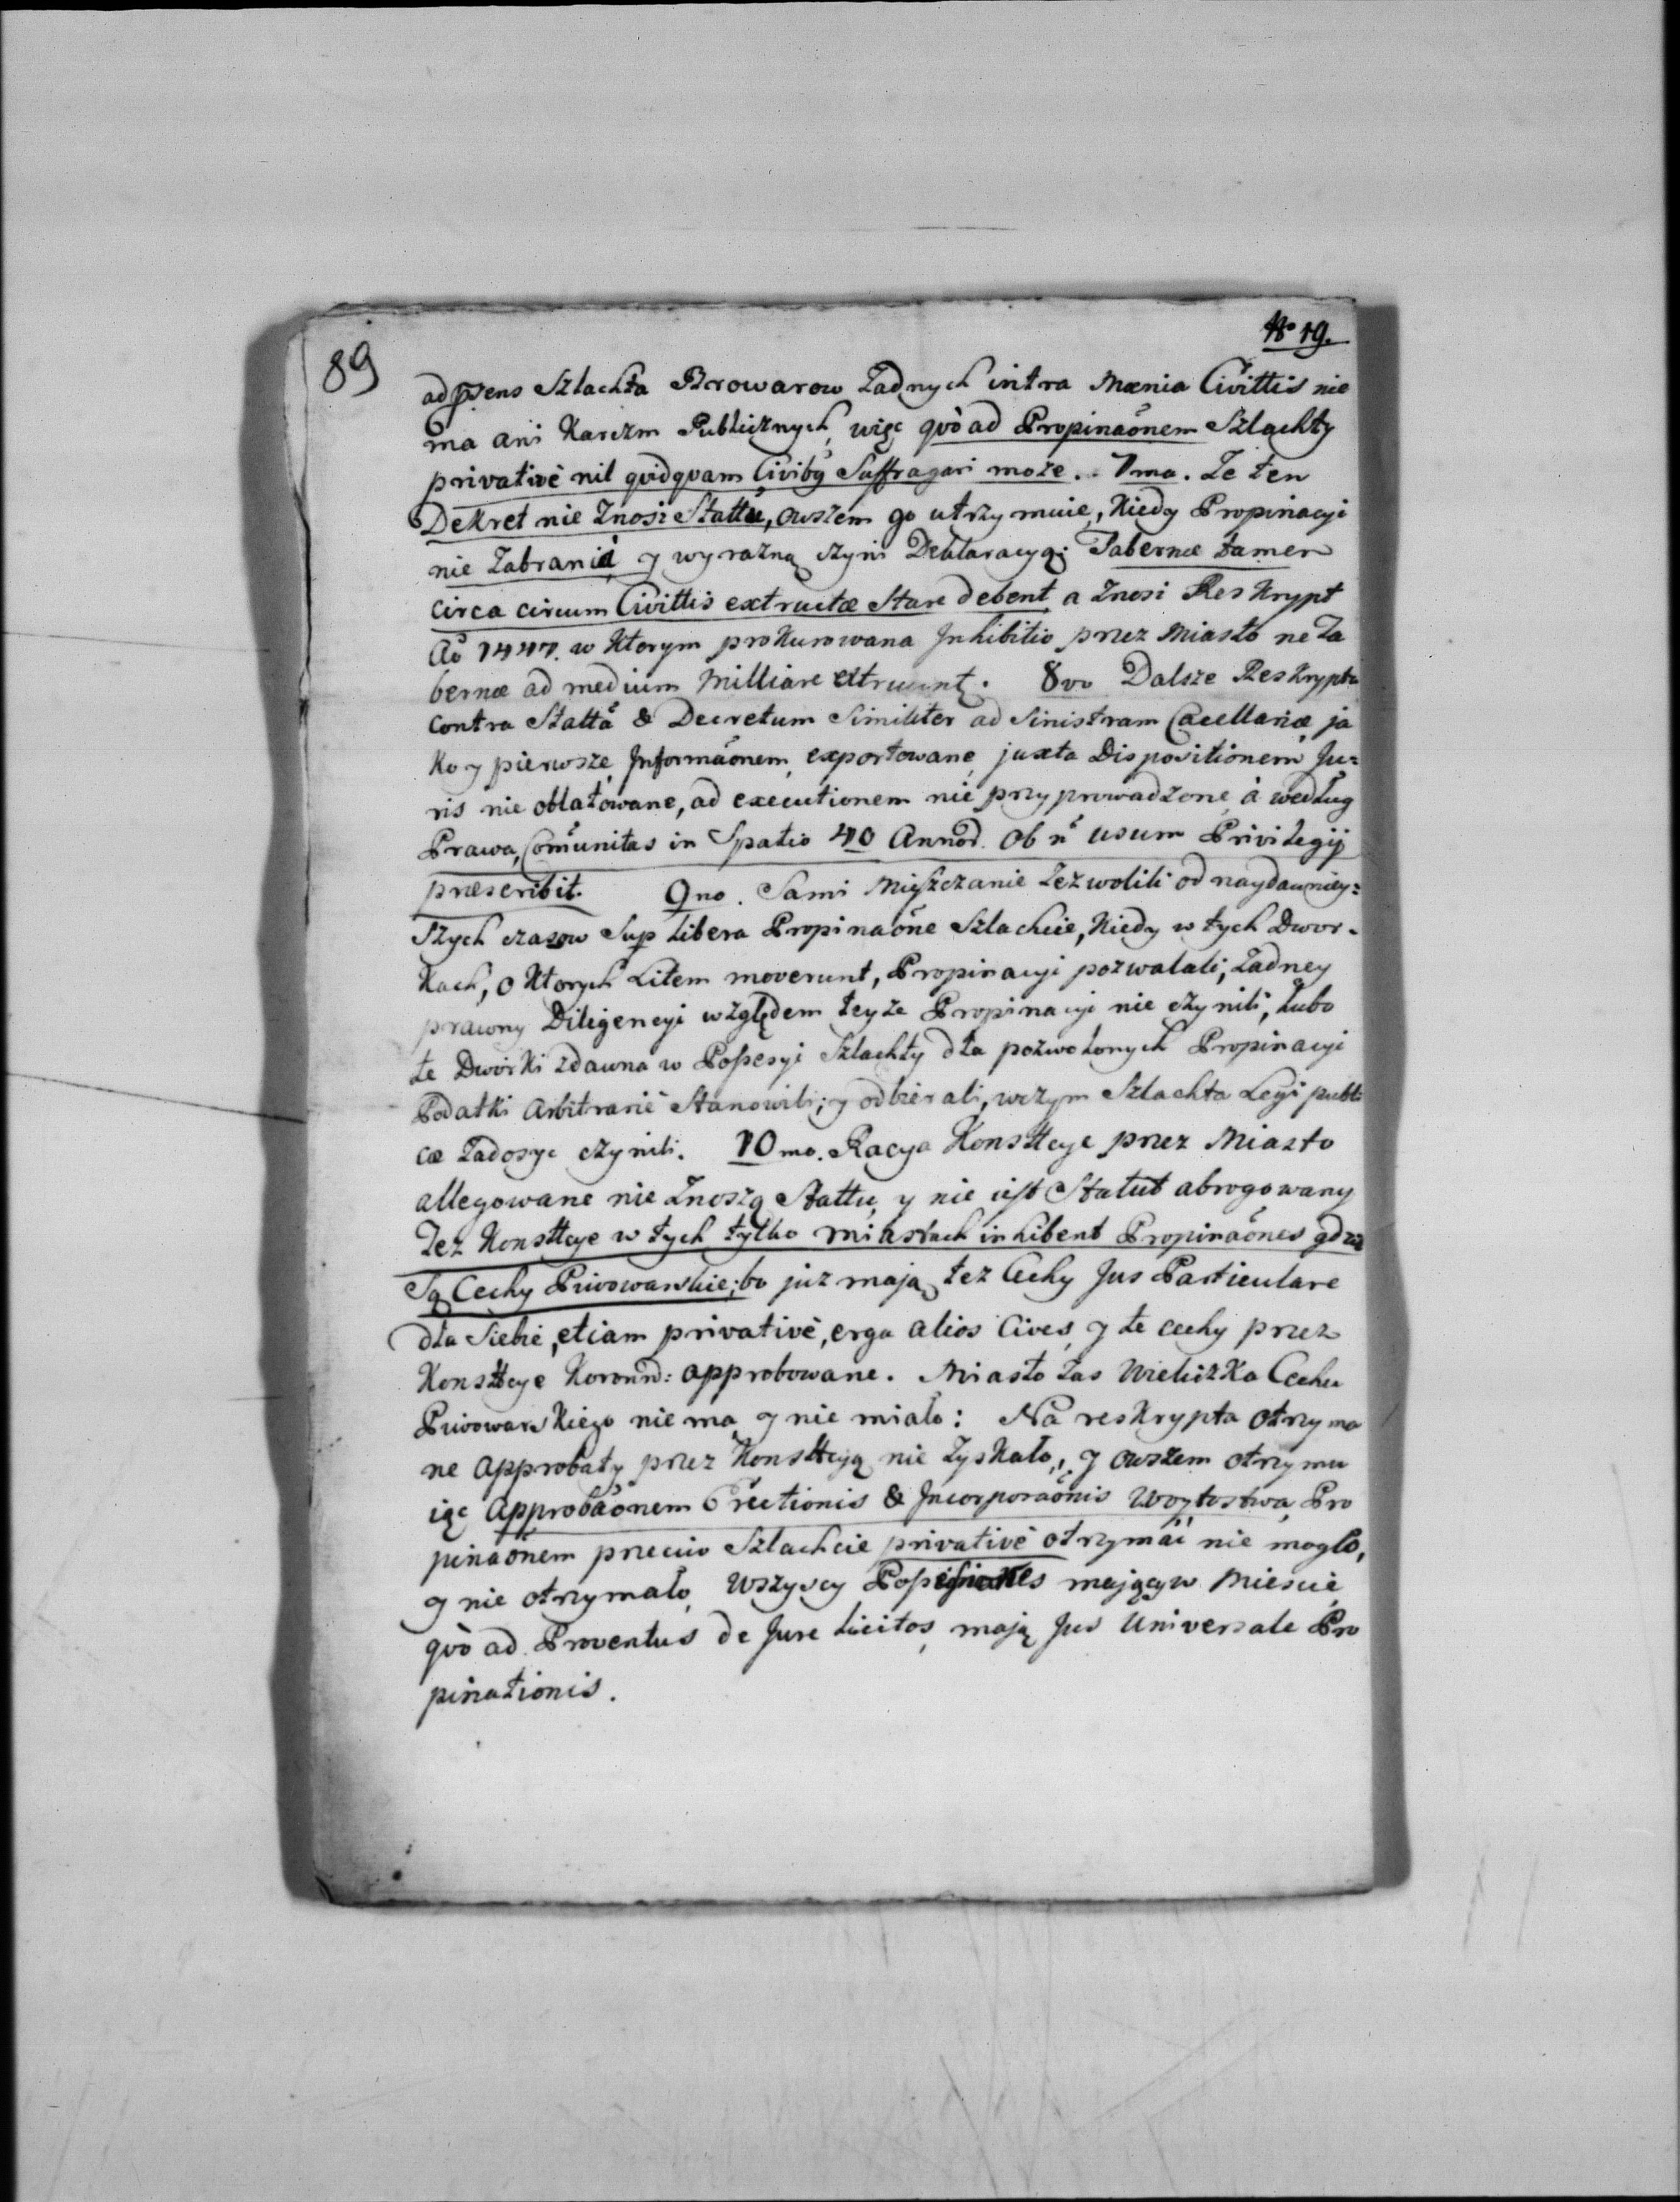 No 19.
89
ad psens Szlachta Browarow Zadnych intra Mænia Civittis nie
ma ani Karczm Publicznych, więc qvò ad Propinaõnem Szlachty
privativè nil qvidqvam Civibq Suffragari może. 7ma. Ze ten
Dekret nie Znosi Stattu, owszem go utrzymuie, Kiedy Propinacyi
nie Zabrania y wyraźną czyni Deklaracyą: Tabernæ tamen
circa circum Civittis extructæ Stare debent, a Znosi Reskrypt
Aõ 1447. w Ktorym prokurowana Inhibitio przez Miasto ne Ta
bernæ ad medium Milliare extruant. 8vo Dalsze Reskrypta
contra Stattã & Decretum Similiter ad Sinistram Cacellariæ, ja
ko y pierwsze Informaõnem, exportowane, juxta Dispositionem Ju=
ris nie oblatowane, ad executionem nie przyprowadzone, à według
Prawa, Comunitas in Spatio 40 Annor. Ob ñ usum Privilegij
præscribit. 9no. Sami Mieszczanie Zezwolili od naydawniey=
szych czasow Sup libera Propinaõne Szlachcie, Kiedy w tych Dwor=
Kach, o Ktorych Litem moverunt, Propinacyi pozwalali, Zadney
prawny Diligencyi względem teyże Propinacyi nie czynili, lubo
te Dworki zdawna w Possesyi Szlachty dla pozwolonych Propinacyi
Podatki Arbitrariè Stanowili, y odbierali, w czym Szlachta Legi publi
cæ Zadosyc czynili. 10mo. Racya Konsttcye przez Miasto
allegowane nie Znoszą Stattu, y nie iest Statut abrogowany
Też Konsttcye w tych tylko miastach inhibent Propinaõnes gdzie
Są Cechy Piwowarskie; bo już mają też Cechy Jus Particulare
dla Siebie, etiam privativè, erga alios Cives, y te cechy przez
Konsttcye Koronn: approbowane. Miasto zas Wieliczka Cechu
Piwowarskiego nie ma, y nie miało: Na reskrypta otrzyma
ne Approbaty przez Konsttcyą nie Zyskało, y owszem otrzymu
iąc Approbaõnem Erectionis & Incorporaõnis Woytostwa, Pro
pinaõnem przeciw Szlachcie privativè otrzymać nie mogło,
y nie otrzymało, Wszyscy mający w Mieście,
qvò ad Proventus de Jure licitos, mają Jus Universale Pro
pinationis.